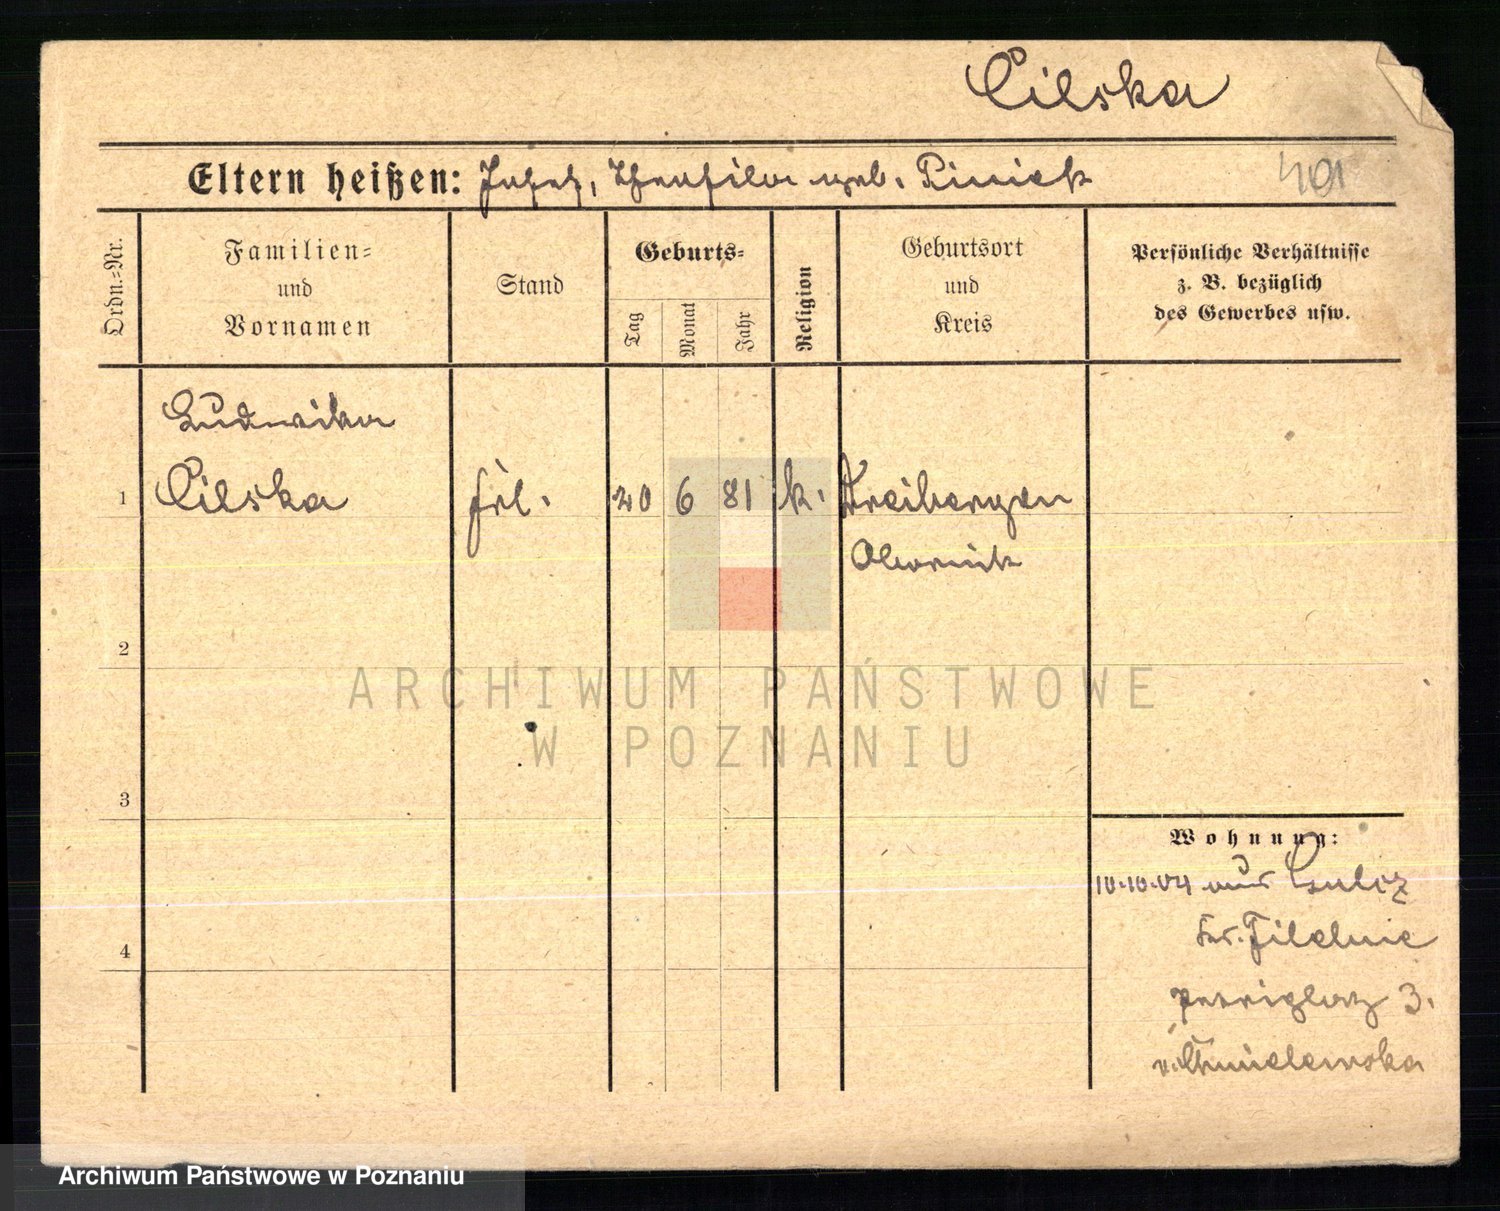 Cilska
Eltern heißen: Josef, Theofila geb. Piniek
401
Ordn.=Nr.
Familien=
und
Vornamen
Stand
Geburts=
Tag
Monat
Jahr
Religion
Geburtsort
und
Kreis
Persönliche Verhältnisse
z. B. bezüglich
des Gewerbes usw.
Ludwika
1 Cilska frl. 20 6 81 k. Dreibergen
Obornik
2
3
4
ARCHIWUM PAŃSTWOWE
W POZNANIU
Wohnung:
10.10.04 aus Gulcz
Kr. Filehne
Petriplatz 3.
v. Chmielewska
Archiwum Państwowe w Poznaniu